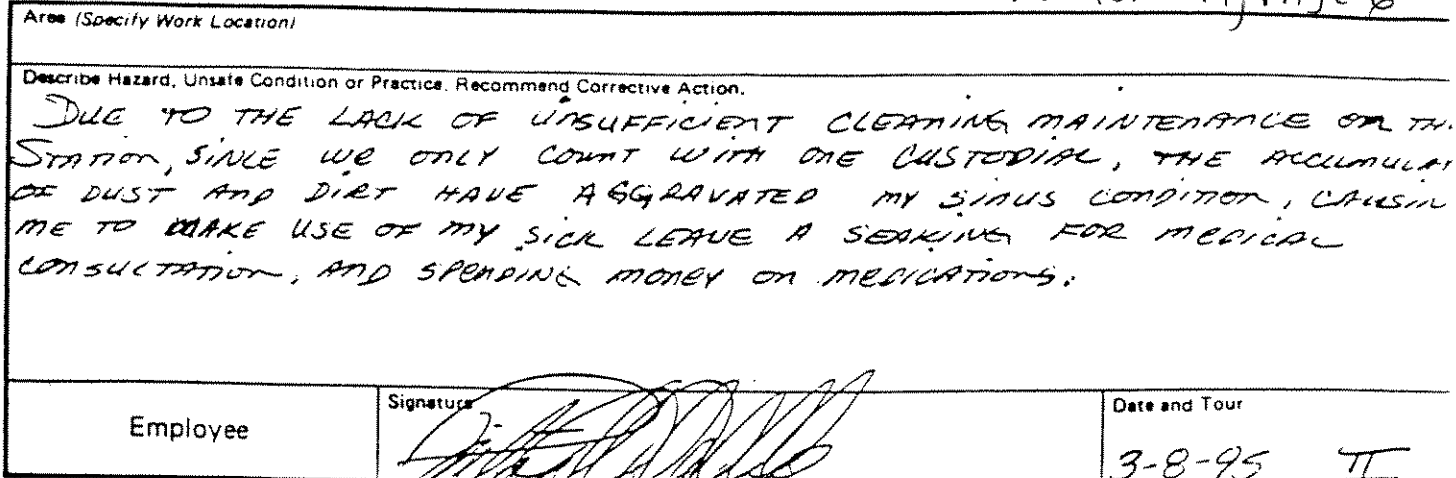 Area (Specify Work Location)
Describe Hazard, Unsafe Condition or Practice. Recommend Corrective Action.
DUE TO THE LACK OF UNSUFFICIENT CLEANING MAINTENANCE ON TH
STATION, SINCE WE ONLY COUNT WITH ONE CUSTODIAL, THE ACCUMULAT
OF DUST AND DIRT HAVE AGGRAVATED MY SINUS CONDITION, CAUSIN
ME TO MAKE USE OF MY SICK LEAVE A SEAKING FOR MEDICAL
CONSULTATION, AND SPENDING MONEY ON MEDICATIONS.
Employee
Signature
Date and Tour
3-8-95 II